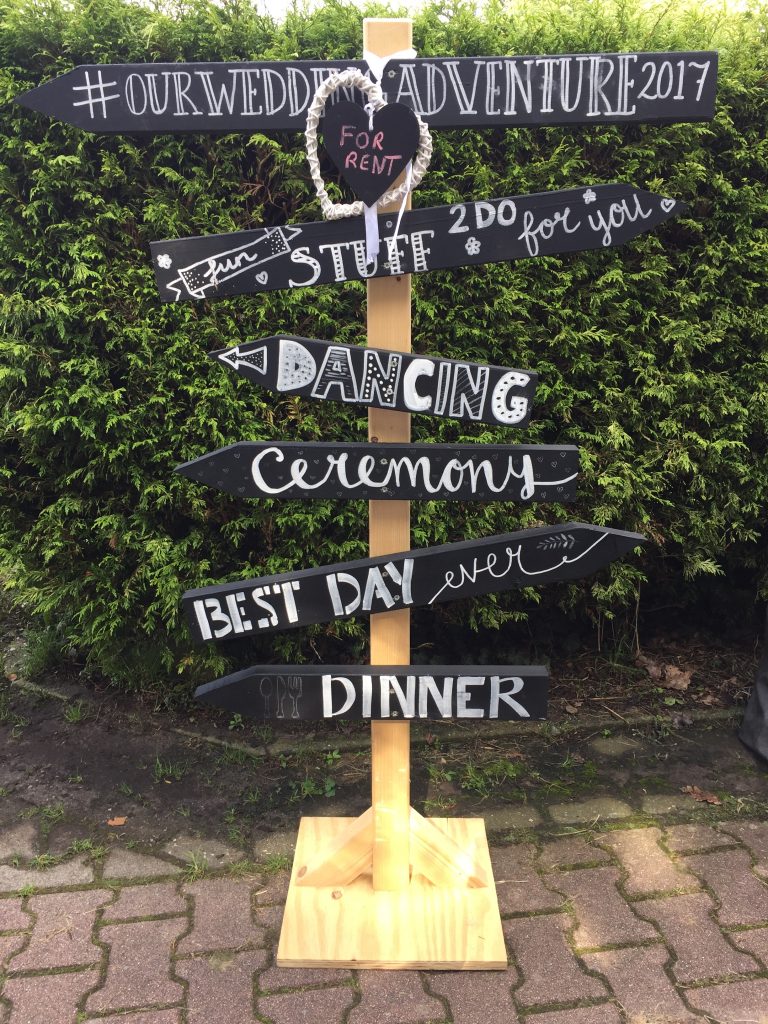 #OURWEDDINGADVENTURE2017
FOR
RENT
fun STUFF 2DO for you
DANCING
Ceremony
BEST DAY ever
DINNER